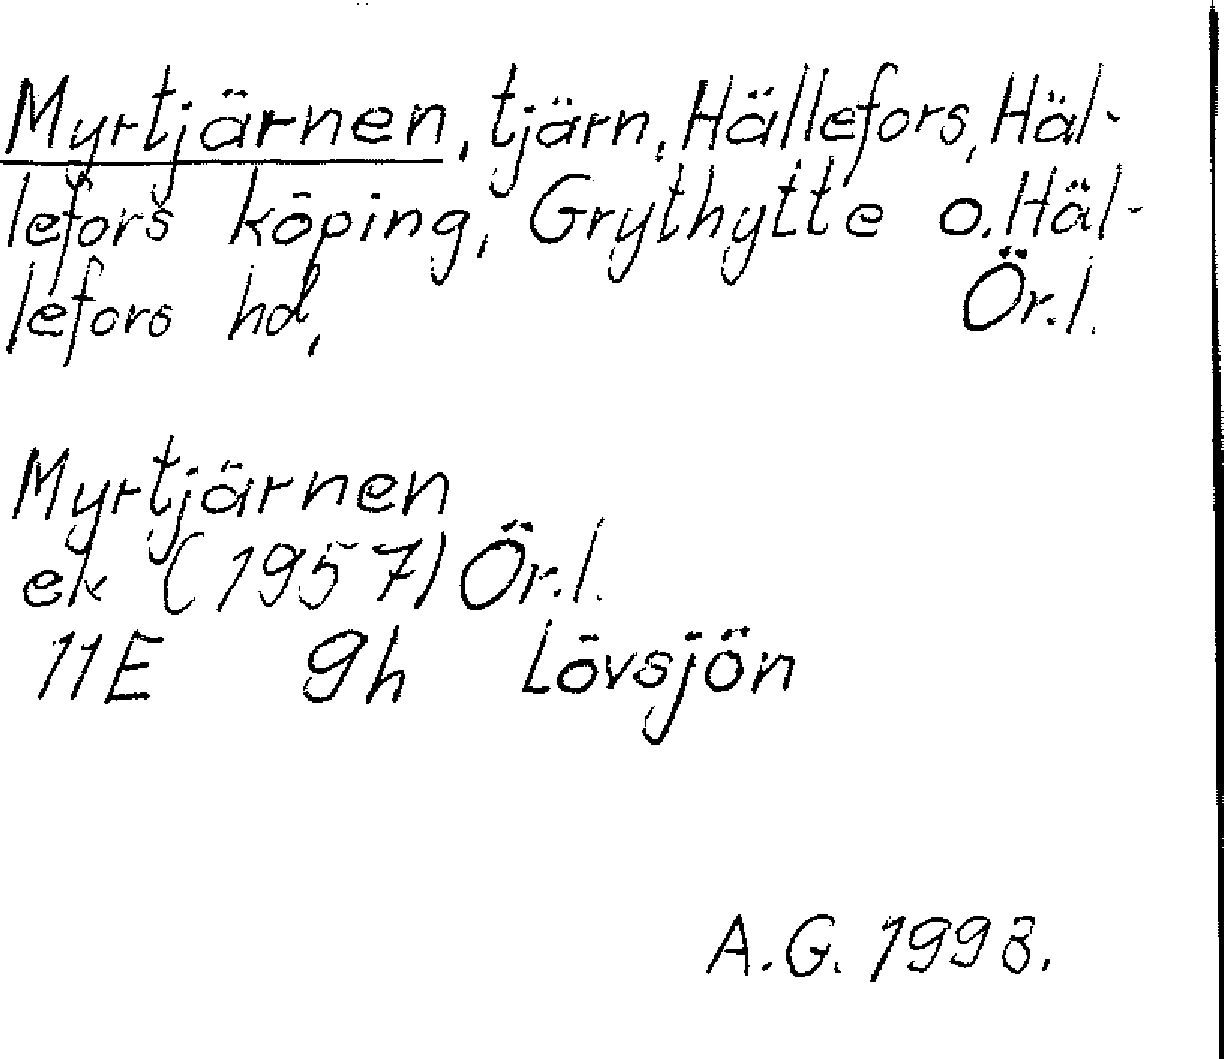 Myrtjärnen, tjärn, Hällefors, Häl-
lefors köping, Grythytte o. Häl-
lefors hd, Ör.l.
Myrtjärnen
ek (1957) Ör.l.
11E 9h Lövsjön
A.G. 1993.